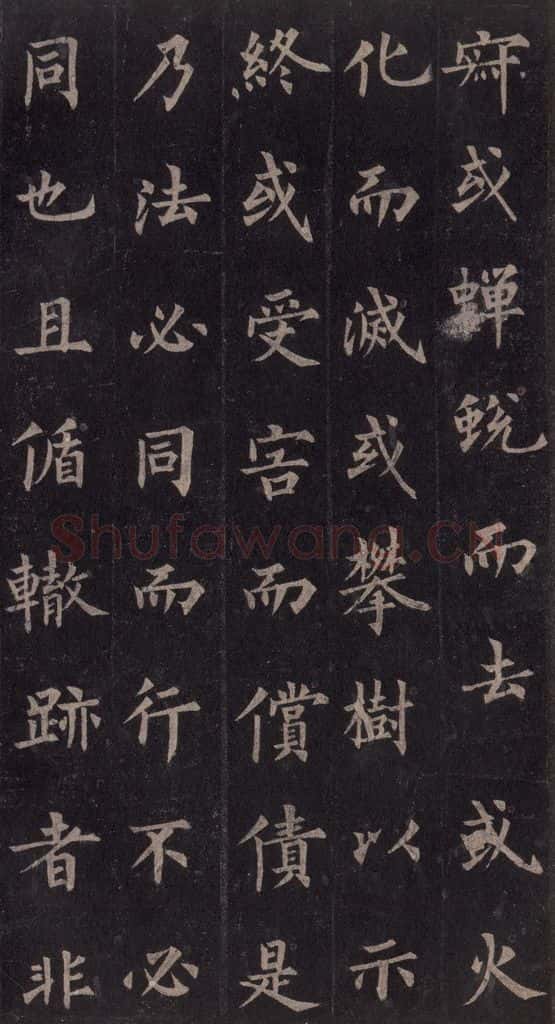 或蟬蛻而去或火
化而滅或攀樹以示
終或受害而償債是
乃法必同而行不必
同也且偱轍跡者非
Shufawang.CN